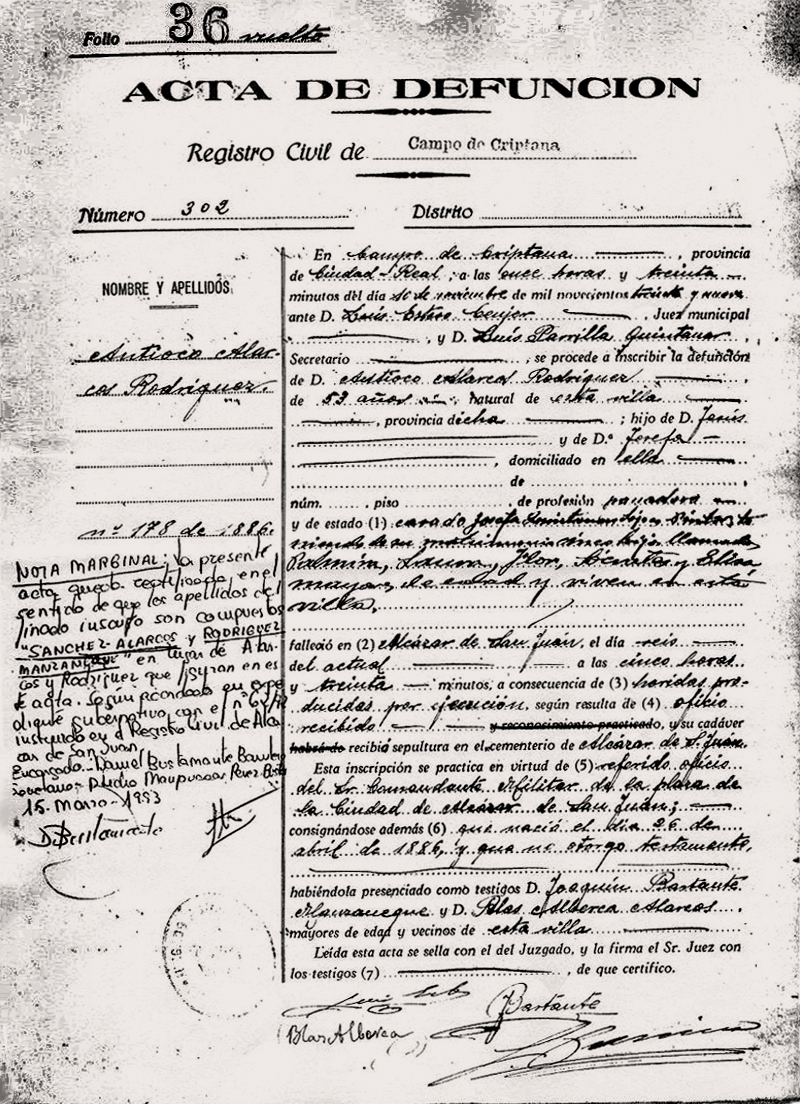 Folio 36 vuelto
ACTA DE DEFUNCION
Registro Civil de Campo de Criptana
Número 302 Distrito
NOMBRE Y APELLIDOS
Antioco Alar-
cos Rodriguez
nº 178 de 1886.
NOTA MARGINAL; la presente
acta queda rectificada, en el
sentido de que los apellidos del
finado inscrito son compuestos
"SANCHEZ-ALARCOS y RODRIGUEZ
MANZANEQUE" en lugar de Alar-
cos y Rodriguez que figuran en es-
te acta. Según acordado en expe
diente gubernativo, con el nº
instruido en el Registro Civil de Alcá
zar de San Juan.
Encargado- Daniel Bustamante
15-Marzo-1993
D. Bustamante
En Campo de Criptana, provincia
de Ciudad-Real, a las once horas y treinta
minutos del día de noviembre de mil novecientos treinta y nueve
ante D. Luis, Juez municipal
, y D. Luis Parrilla Quintanar,
Secretario, se procede a inscribir la defunción
de D. Antioco Alarcos Rodriguez,
de 53 años natural de esta villa
, provincia dicha; hijo de D. Jesús
y de D.ª Josefa
, domiciliado en ella
de
núm. , piso , de profesión panadero
y de estado (1) casado Josefa
de su matrimonio cinco hijos llamados
Laura, Flor, y Elisa
mayores de edad y viven en esta
villa,
falleció en (2) Alcázar de San Juan, el día seis
del actual a las cinco horas
y treinta minutos, a consecuencia de (3) heridas pro-
ducidas por ejecución, según resulta de (4) oficio
recibido y reconocimiento practicado, y su cadáver
habrá de recibió sepultura en el cementerio de Alcázar de S. Juan.
Esta inscripción se practica en virtud de (5) referido oficio
del Sr. Comandante Militar de la plaza de
la Ciudad de Alcázar de San Juan;
consignándose además (6) que nació el dia 26 de
abril de 1886, y que no otorgo testamento,
habiéndola presenciado como testigos D. Joaquín Bastante
Manzaneque y D. Blas Alberca Alarcos
mayores de edad y vecinos de esta villa
Leída esta acta se sella con el del Juzgado, y la firma el Sr. Juez con
los testigos (7), de que certifico.
Bastante
Blas Alberca